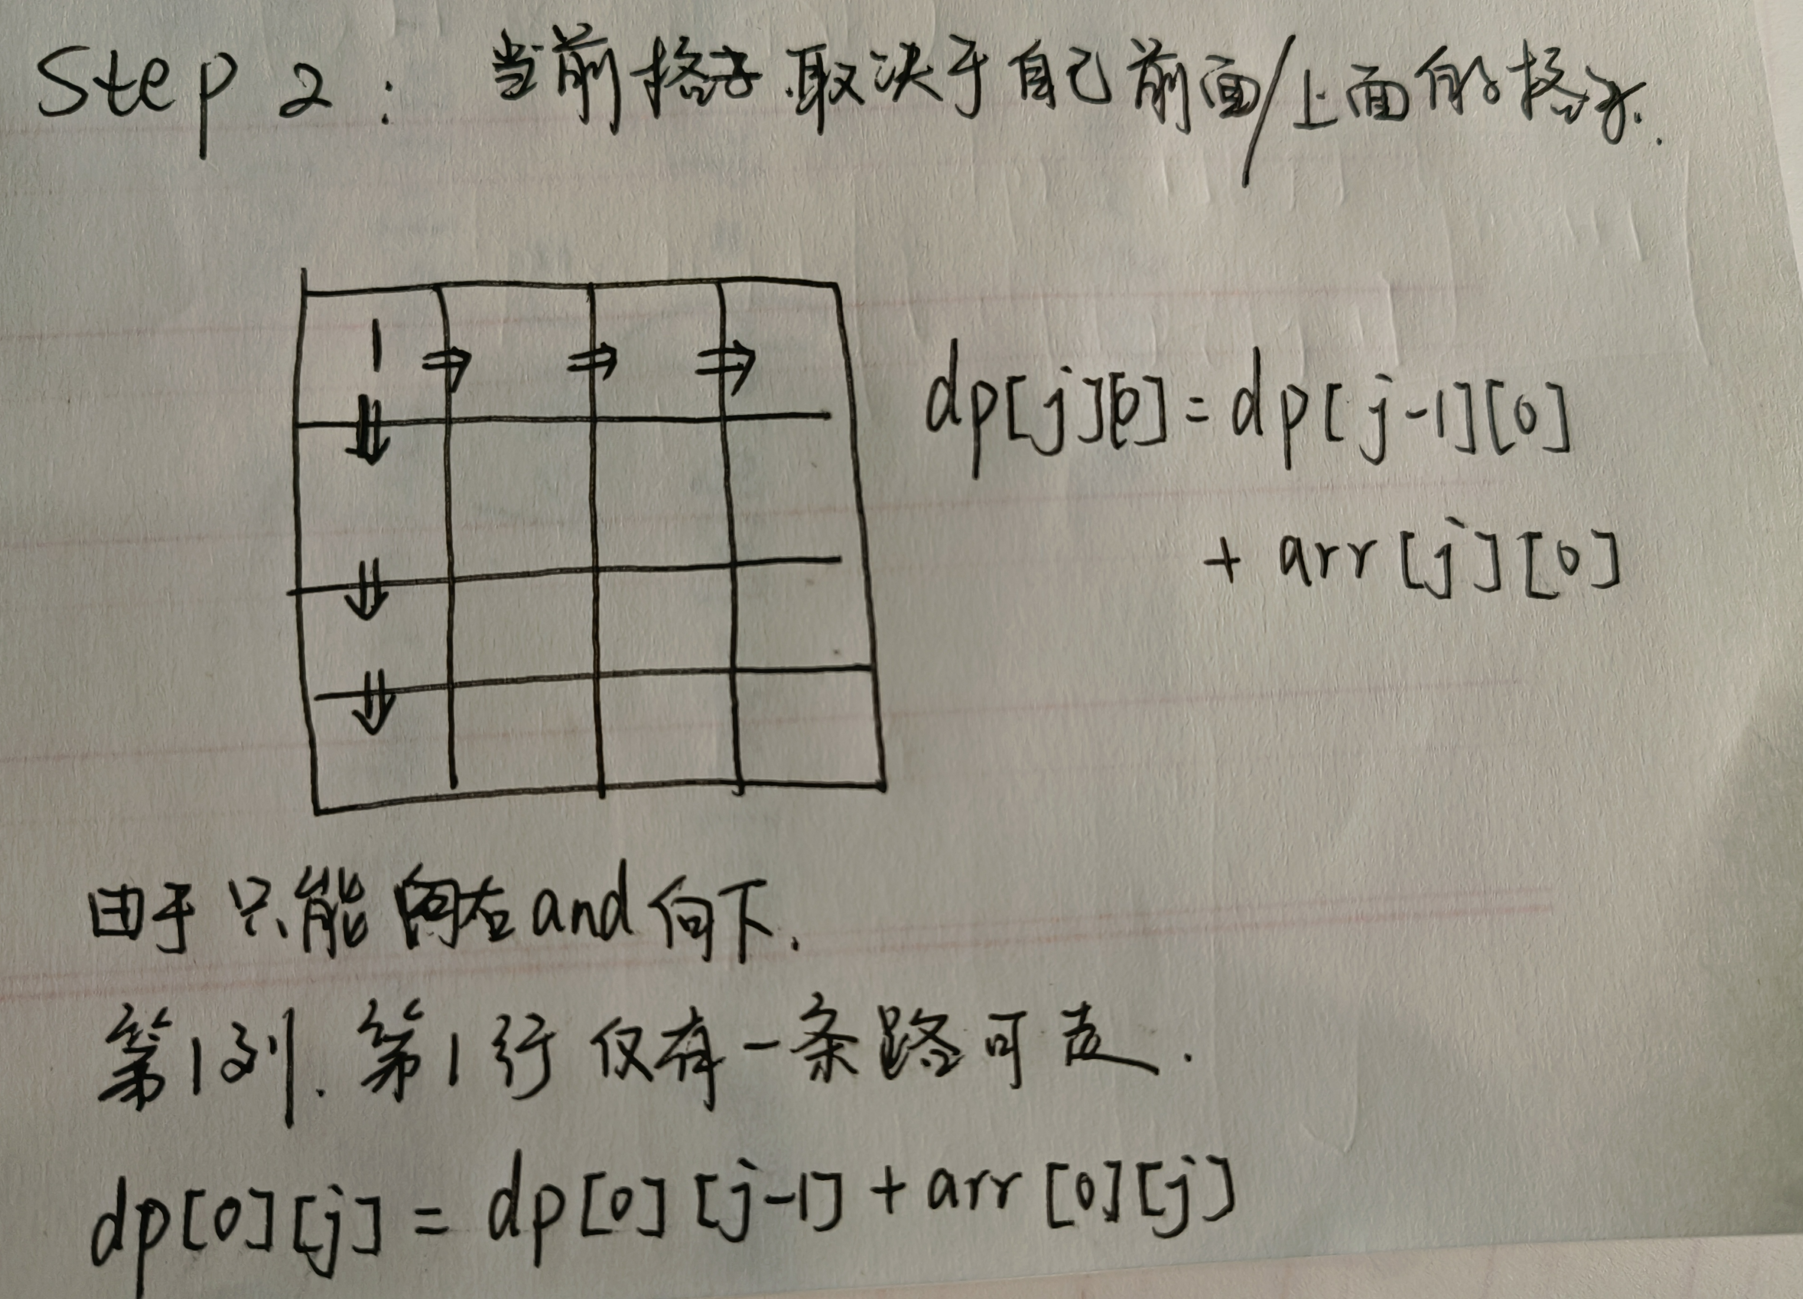 Step 2: 当前格子取决于自己前面/上面的格子.
1 ⇒ ⇒ ⇒
⇓
⇓
⇓
dp[j][0]=dp[j-1][0]
+ arr[j][0]
由于只能向右and向下.
第1列.第1行仅有一条路可走.
dp[0][j] = dp[0][j-1] + arr[0][j]